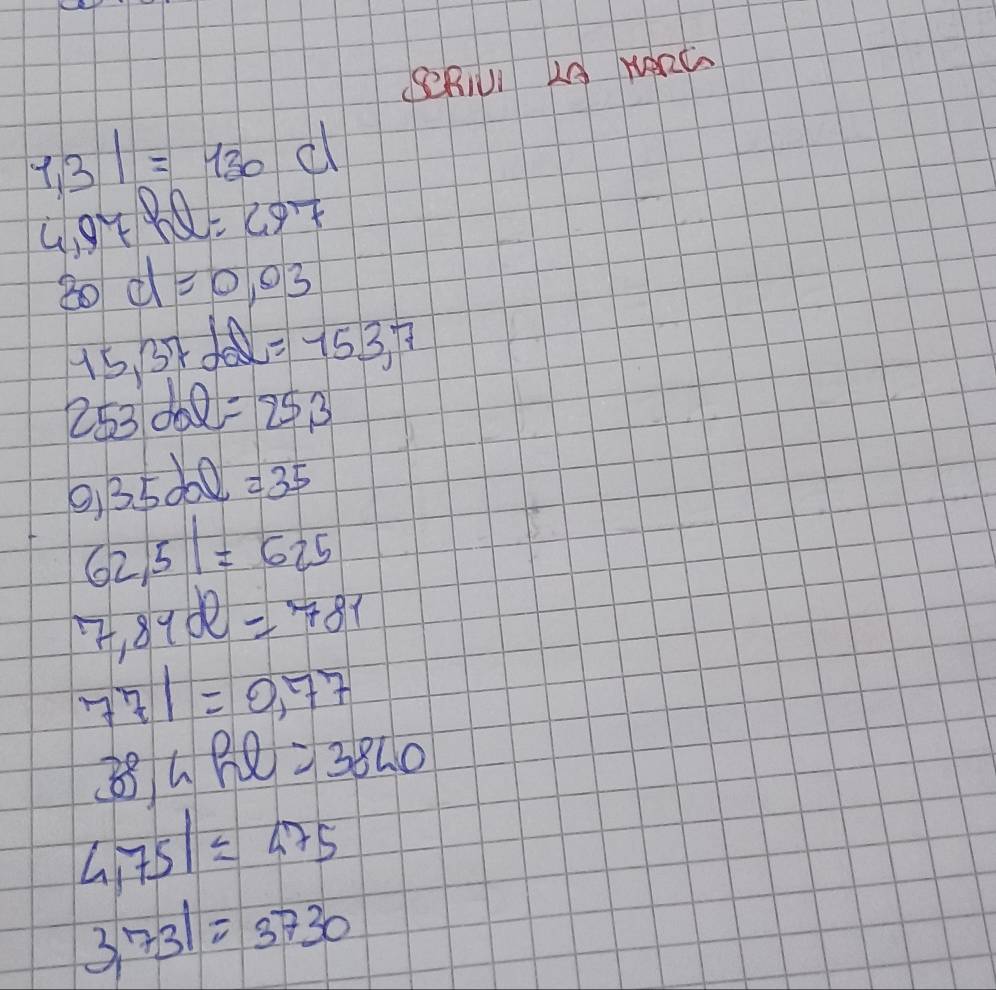 SCRIVI LA MARCA
1,3 l = 130 cl
4,97 hl = 497
30 cl = 0,03
15,37 dal = 153,7
253 dal = 25,3
0,35 dal = 35
62,5 l = 625
7,81 dl = 781
77 l = 0,77
38,4 hl = 3840
4,75 l = 475
3,73 l = 3730